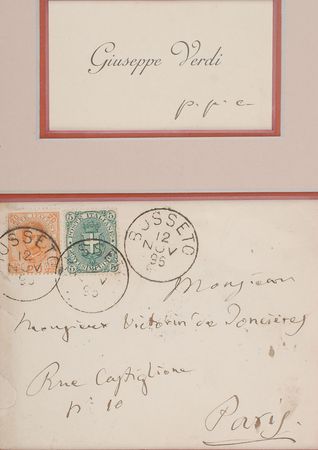 Giuseppe Verdi
p. p. c.
POSTE ITALIANE
BUSSETO
12
NOV
95
BUSSETO
12
NOV
95
Monsieur
Monsieur Victorin de Joncières
Rue Castiglione
n° 10
Paris.